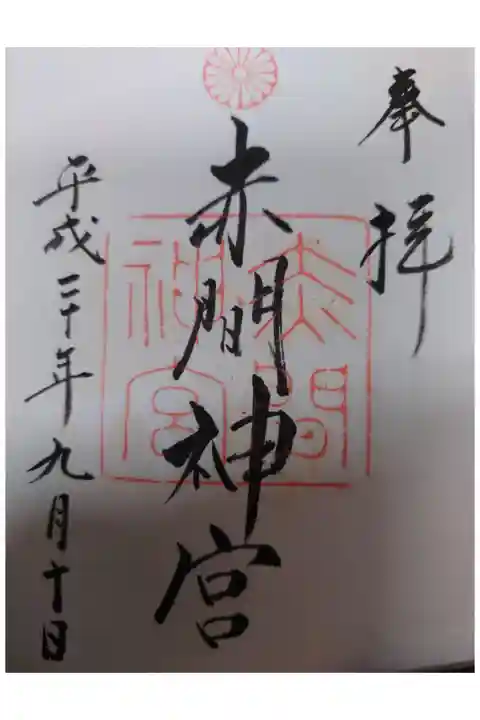 奉拝
赤間神宮
赤間
神宮
平成二十年九月十日